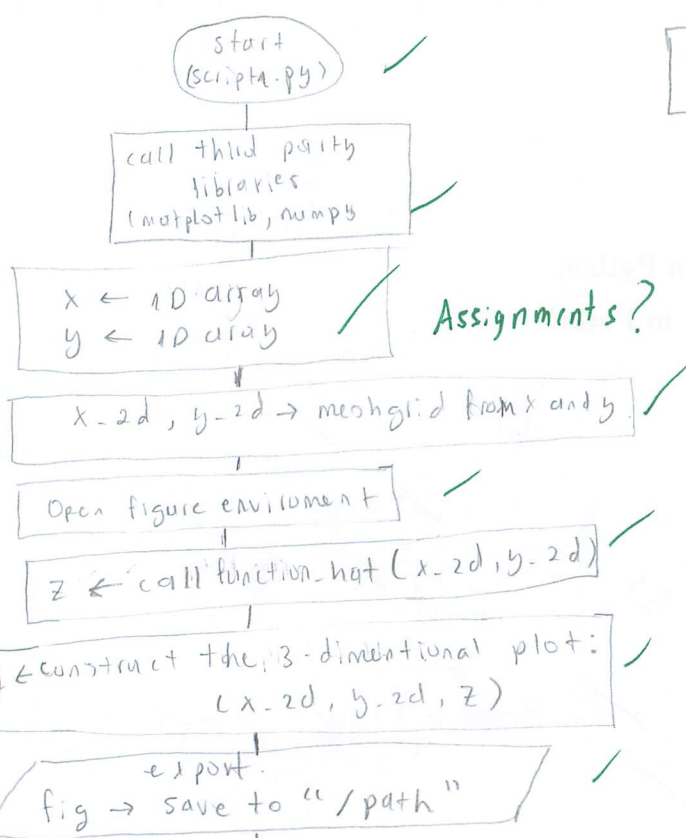 start
(scripta.py)
call third party
libraries
(matplotlib, numpy
x ← 1D array
y ← 1D aray
Assignments?
x_2d, y_2d → meshgrid from x and y
Open figure enviroment
z ← call function_hat (x_2d, y_2d)
← construct the 3-dimentional plot:
(x_2d, y_2d, z)
export.
fig → save to "/path"